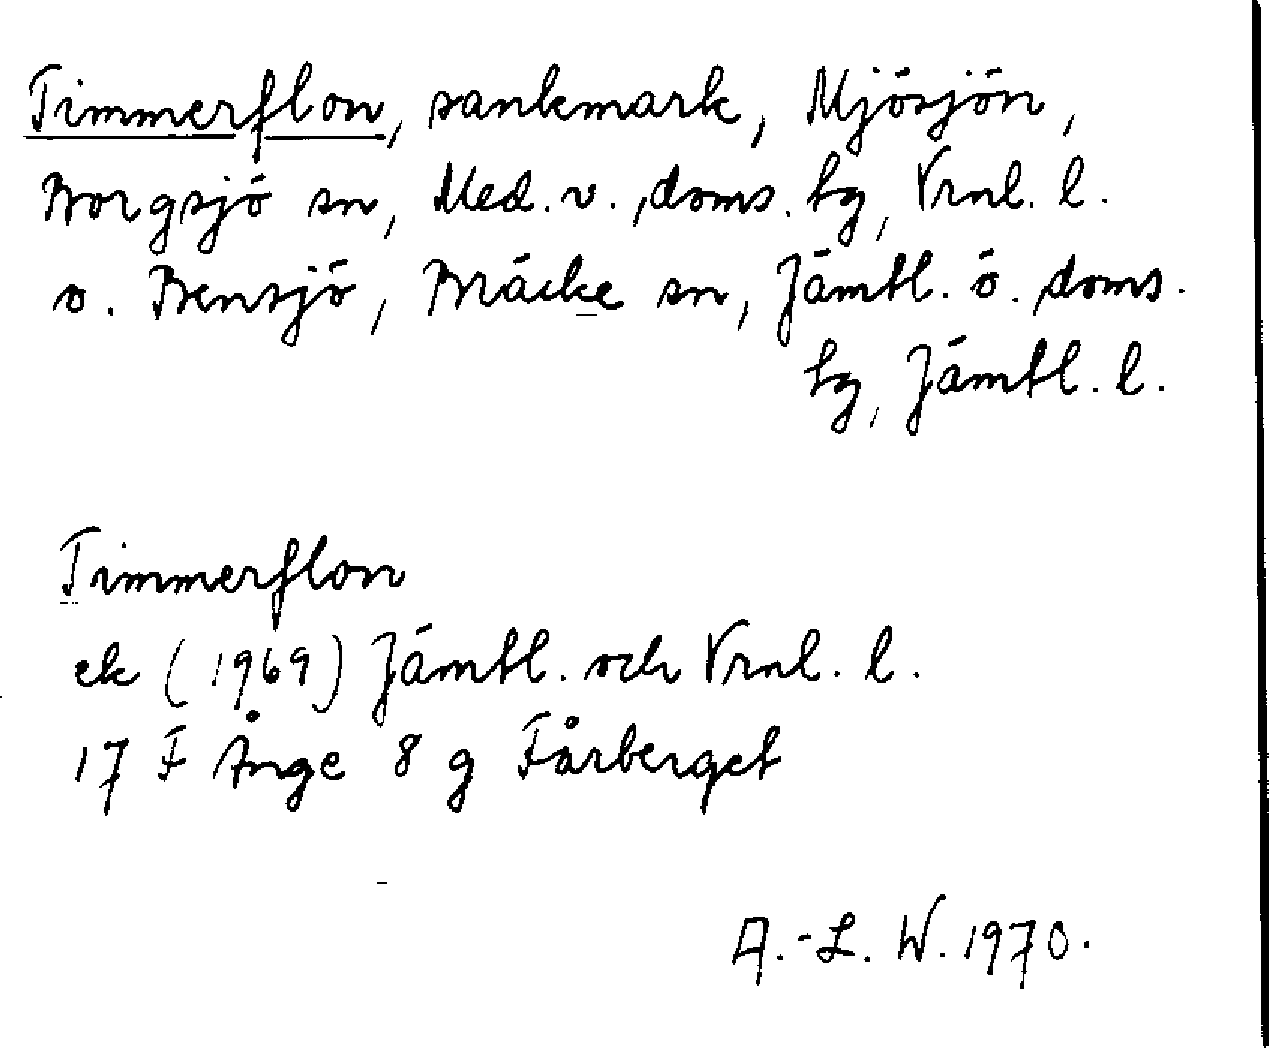 Timmerflon, sankmark, Mjösjön,
Borgsjö sn, Med. v. doms. tg, Vrnl. l.
o. Bensjö, Bräcke sn, Jämtl. ö. doms.
tg, Jämtl. l.
Timmerflon
ek (1969) Jämtl. och Vrnl. l.
17 F Ånge 8 g Fårberget
A.-L. W. 1970.